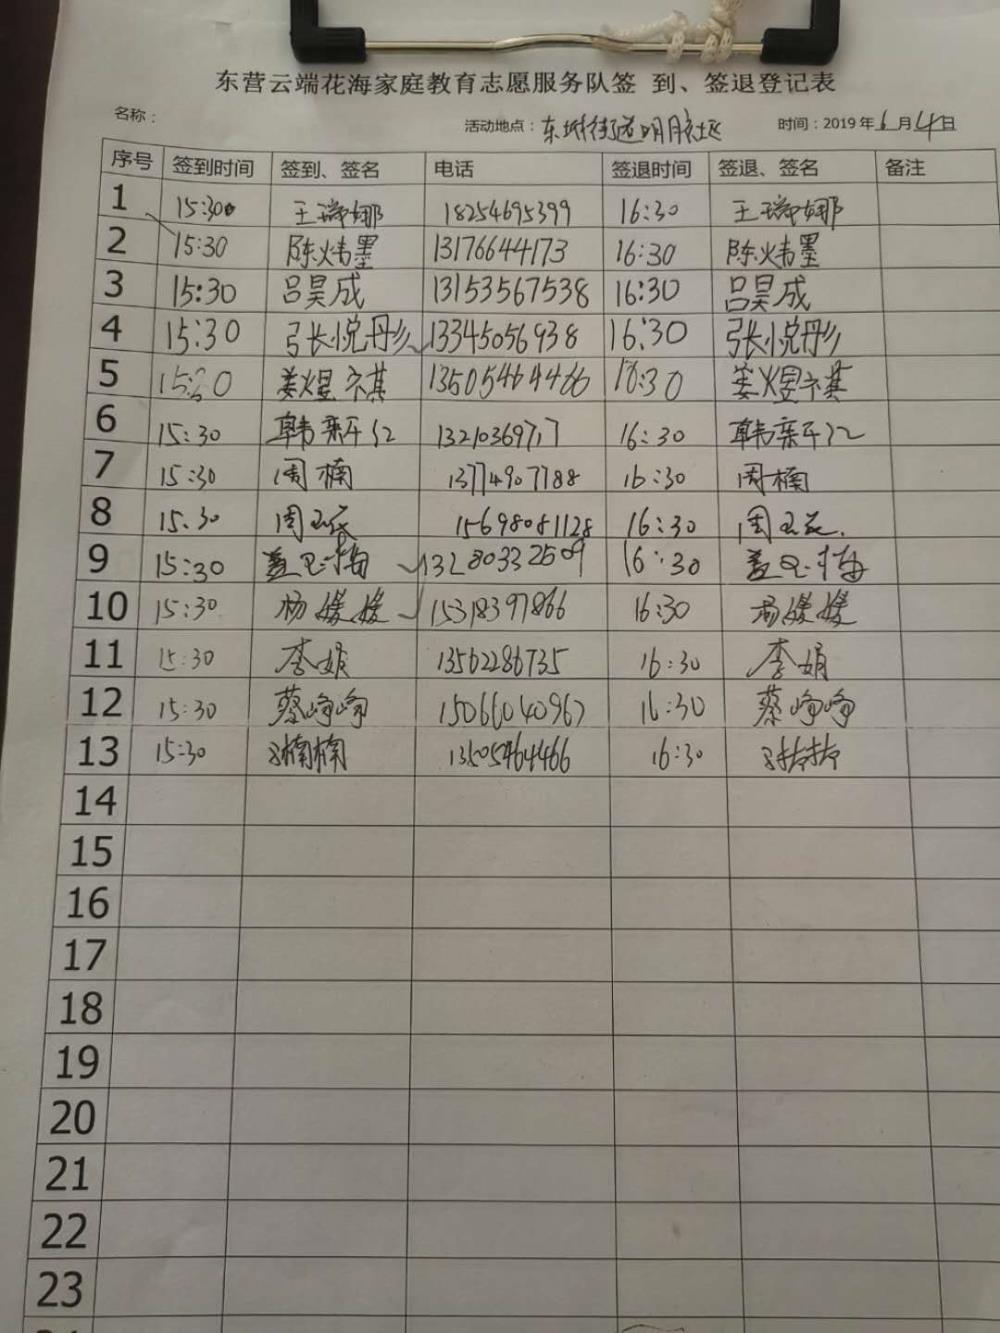 东营云端花海家庭教育志愿服务队签 到、签退登记表
名称： 活动地点：东城街道明月社区 时间：2019年6月4日
序号 签到时间 签到、签名 电话 签退时间 签退、签名 备注
1 15:30 王瑞娜 18254695399 16:30 王瑞娜
2 15:30 陈炜墨 13176644173 16:30 陈炜墨
3 15:30 吕昊成 13153567538 16:30 吕昊成
4 15:30 张悦彤 13345056938 16:30 张悦彤
5 15:30 姜煜祺 13505464466 16:30 姜煜祺
6 15:30 韩 13210369717 16:30 韩
7 15:30 周楠 13774907788 16:30 周楠
8 15.30 周玉 15698081128 16:30 周玉
9 15:30 盖 梅 13280332509 16:30 盖 梅
10 15:30 杨媛媛 15318397866 16:30 杨媛媛
11 15:30 李娟 13562286735 16:30 李娟
12 15:30 蔡峥峥 15066040967 16:30 蔡峥峥
13 15:30 楠楠 13505464466 16:30
14
15
16
17
18
19
20
21
22
23